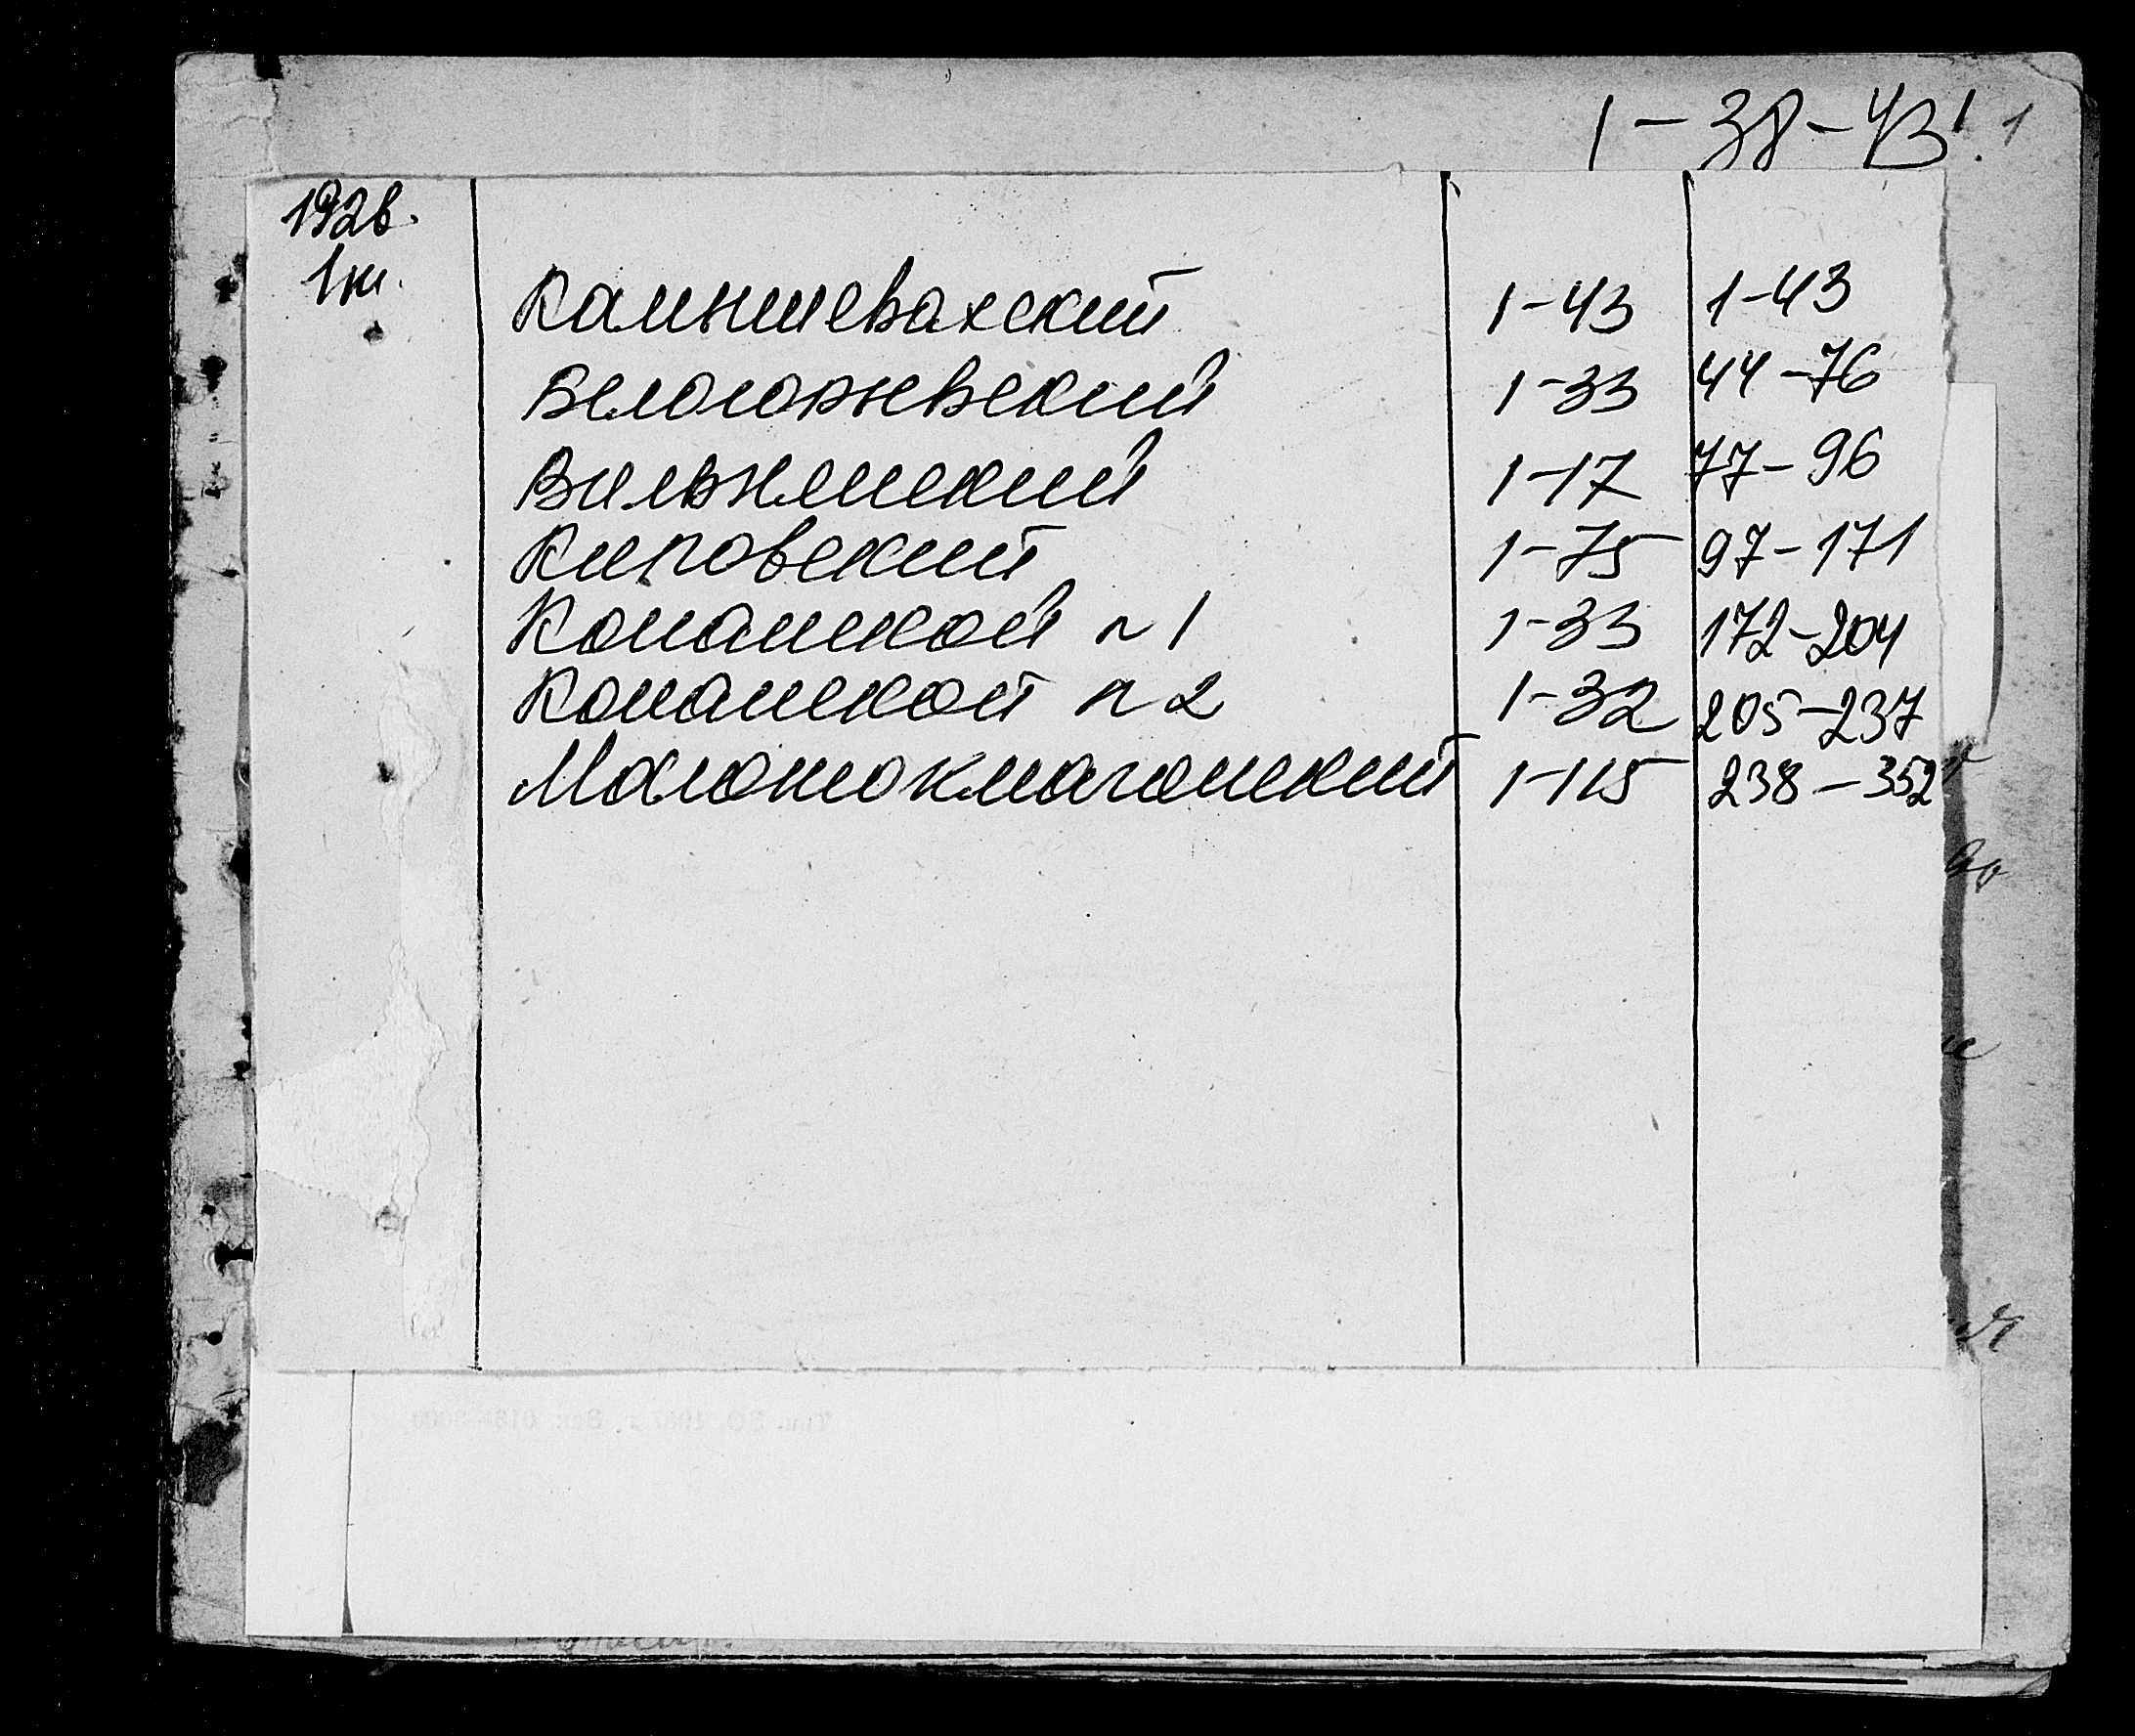 1-38-43! 1
1926.
1кн.
Камышевахский 1-43 1-43
Белогорьевский 1-33 44-76
Вильнянский 1-17 77-96
Кировский 1-75 97-171
Конашкой №1 1-33 172-204
Конашкой №2 1-32 205-237
Малотокмачанский 1-115 238-352